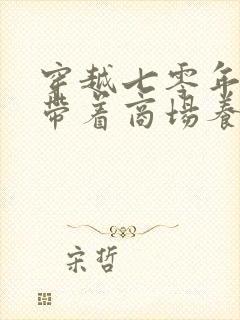 穿越七零年
带着商场养
宋哲